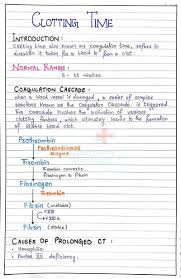 CLOTTING TIME
INTRODUCTION :
Clotting time also known as coagulation time, refers to
duration it takes for a blood to form a clot.
NORMAL RANGE :
5 - 15 minutes
COAGULATION CASCADE :
when a blood vessel is damaged, a series of complex
reactions known as the Coagulation Cascade, is triggered.
This cascade involves the activation of various
clotting factors, which ultimately leads to the formation
of stable blood clot.
Prothrombin
Prothrombinase
enzyme
Thrombin
Thrombin converts
Fibrinogen to Fibrin
Fibrinogen
Thrombin
Fibrin (unstable)
Fibrin (stable)
CAUSES OF PROLONGED CT :
Hemophilia
Factor XII deficiency.